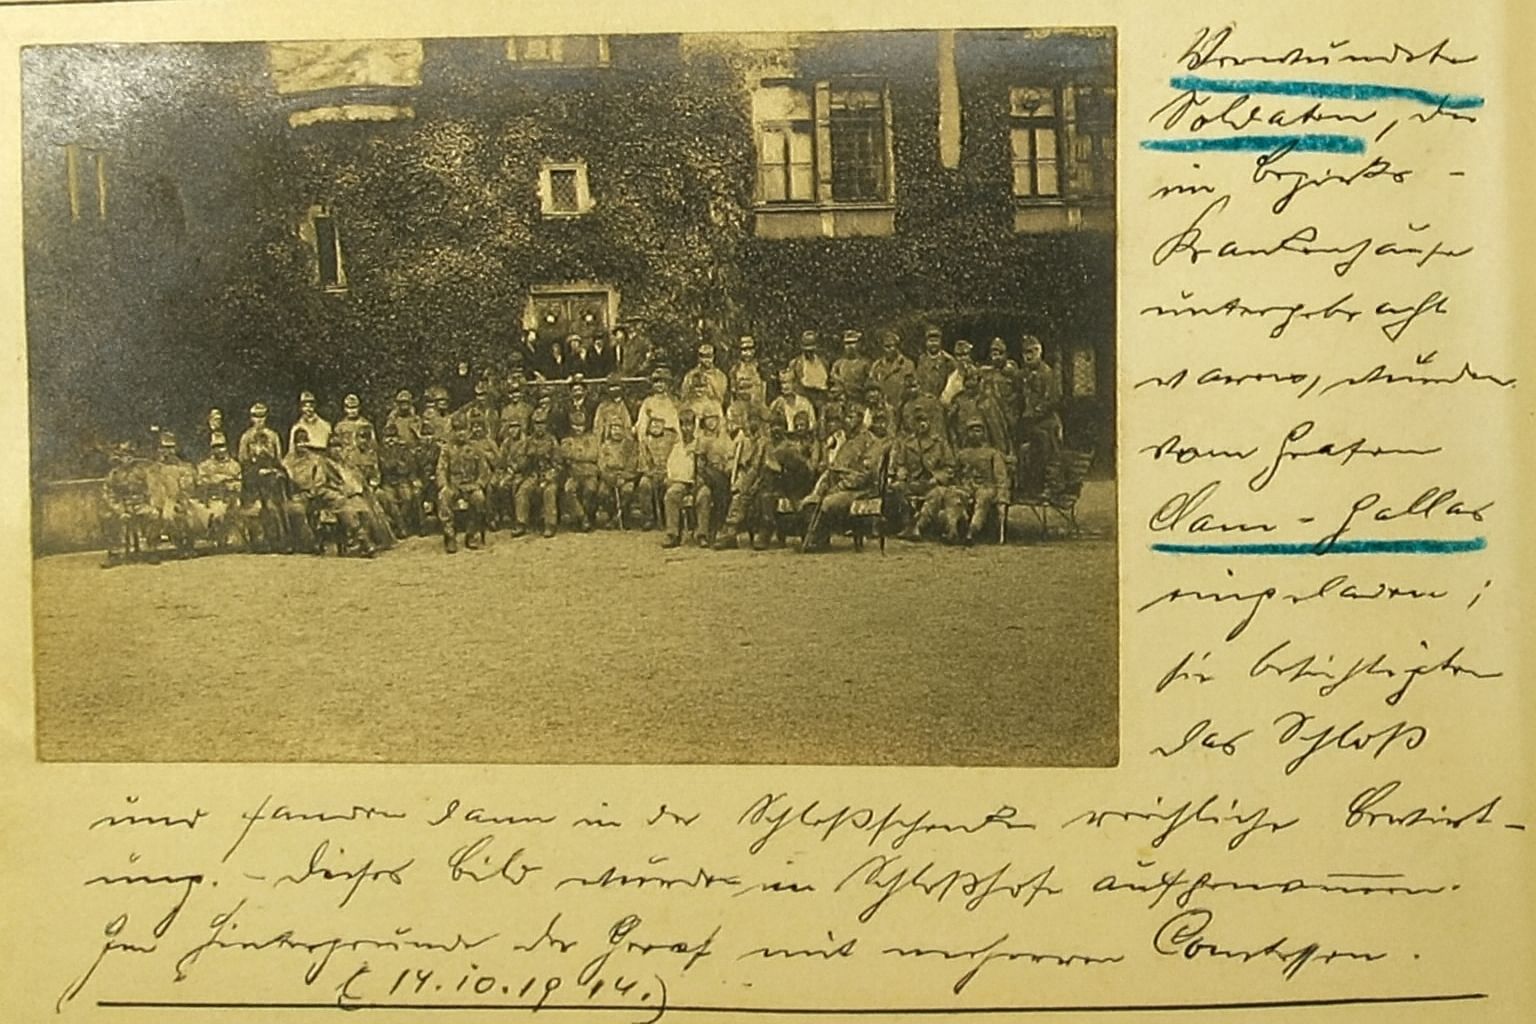 Verwundete
Soldaten, die
im Bezirks-
Krankenhause
untergebracht
waren, wurden
vom Grafen
Clam-Gallas
eingeladen;
sie besichtigten
das Schloß
und fanden dann in der Schloßschenke reichliche Bewirt-
ung. - Dieses Bild wurde im Schloßhofe aufgenommen.
Im Hintergrunde der Graf mit mehreren Comtessen.
(14.10.1914.)